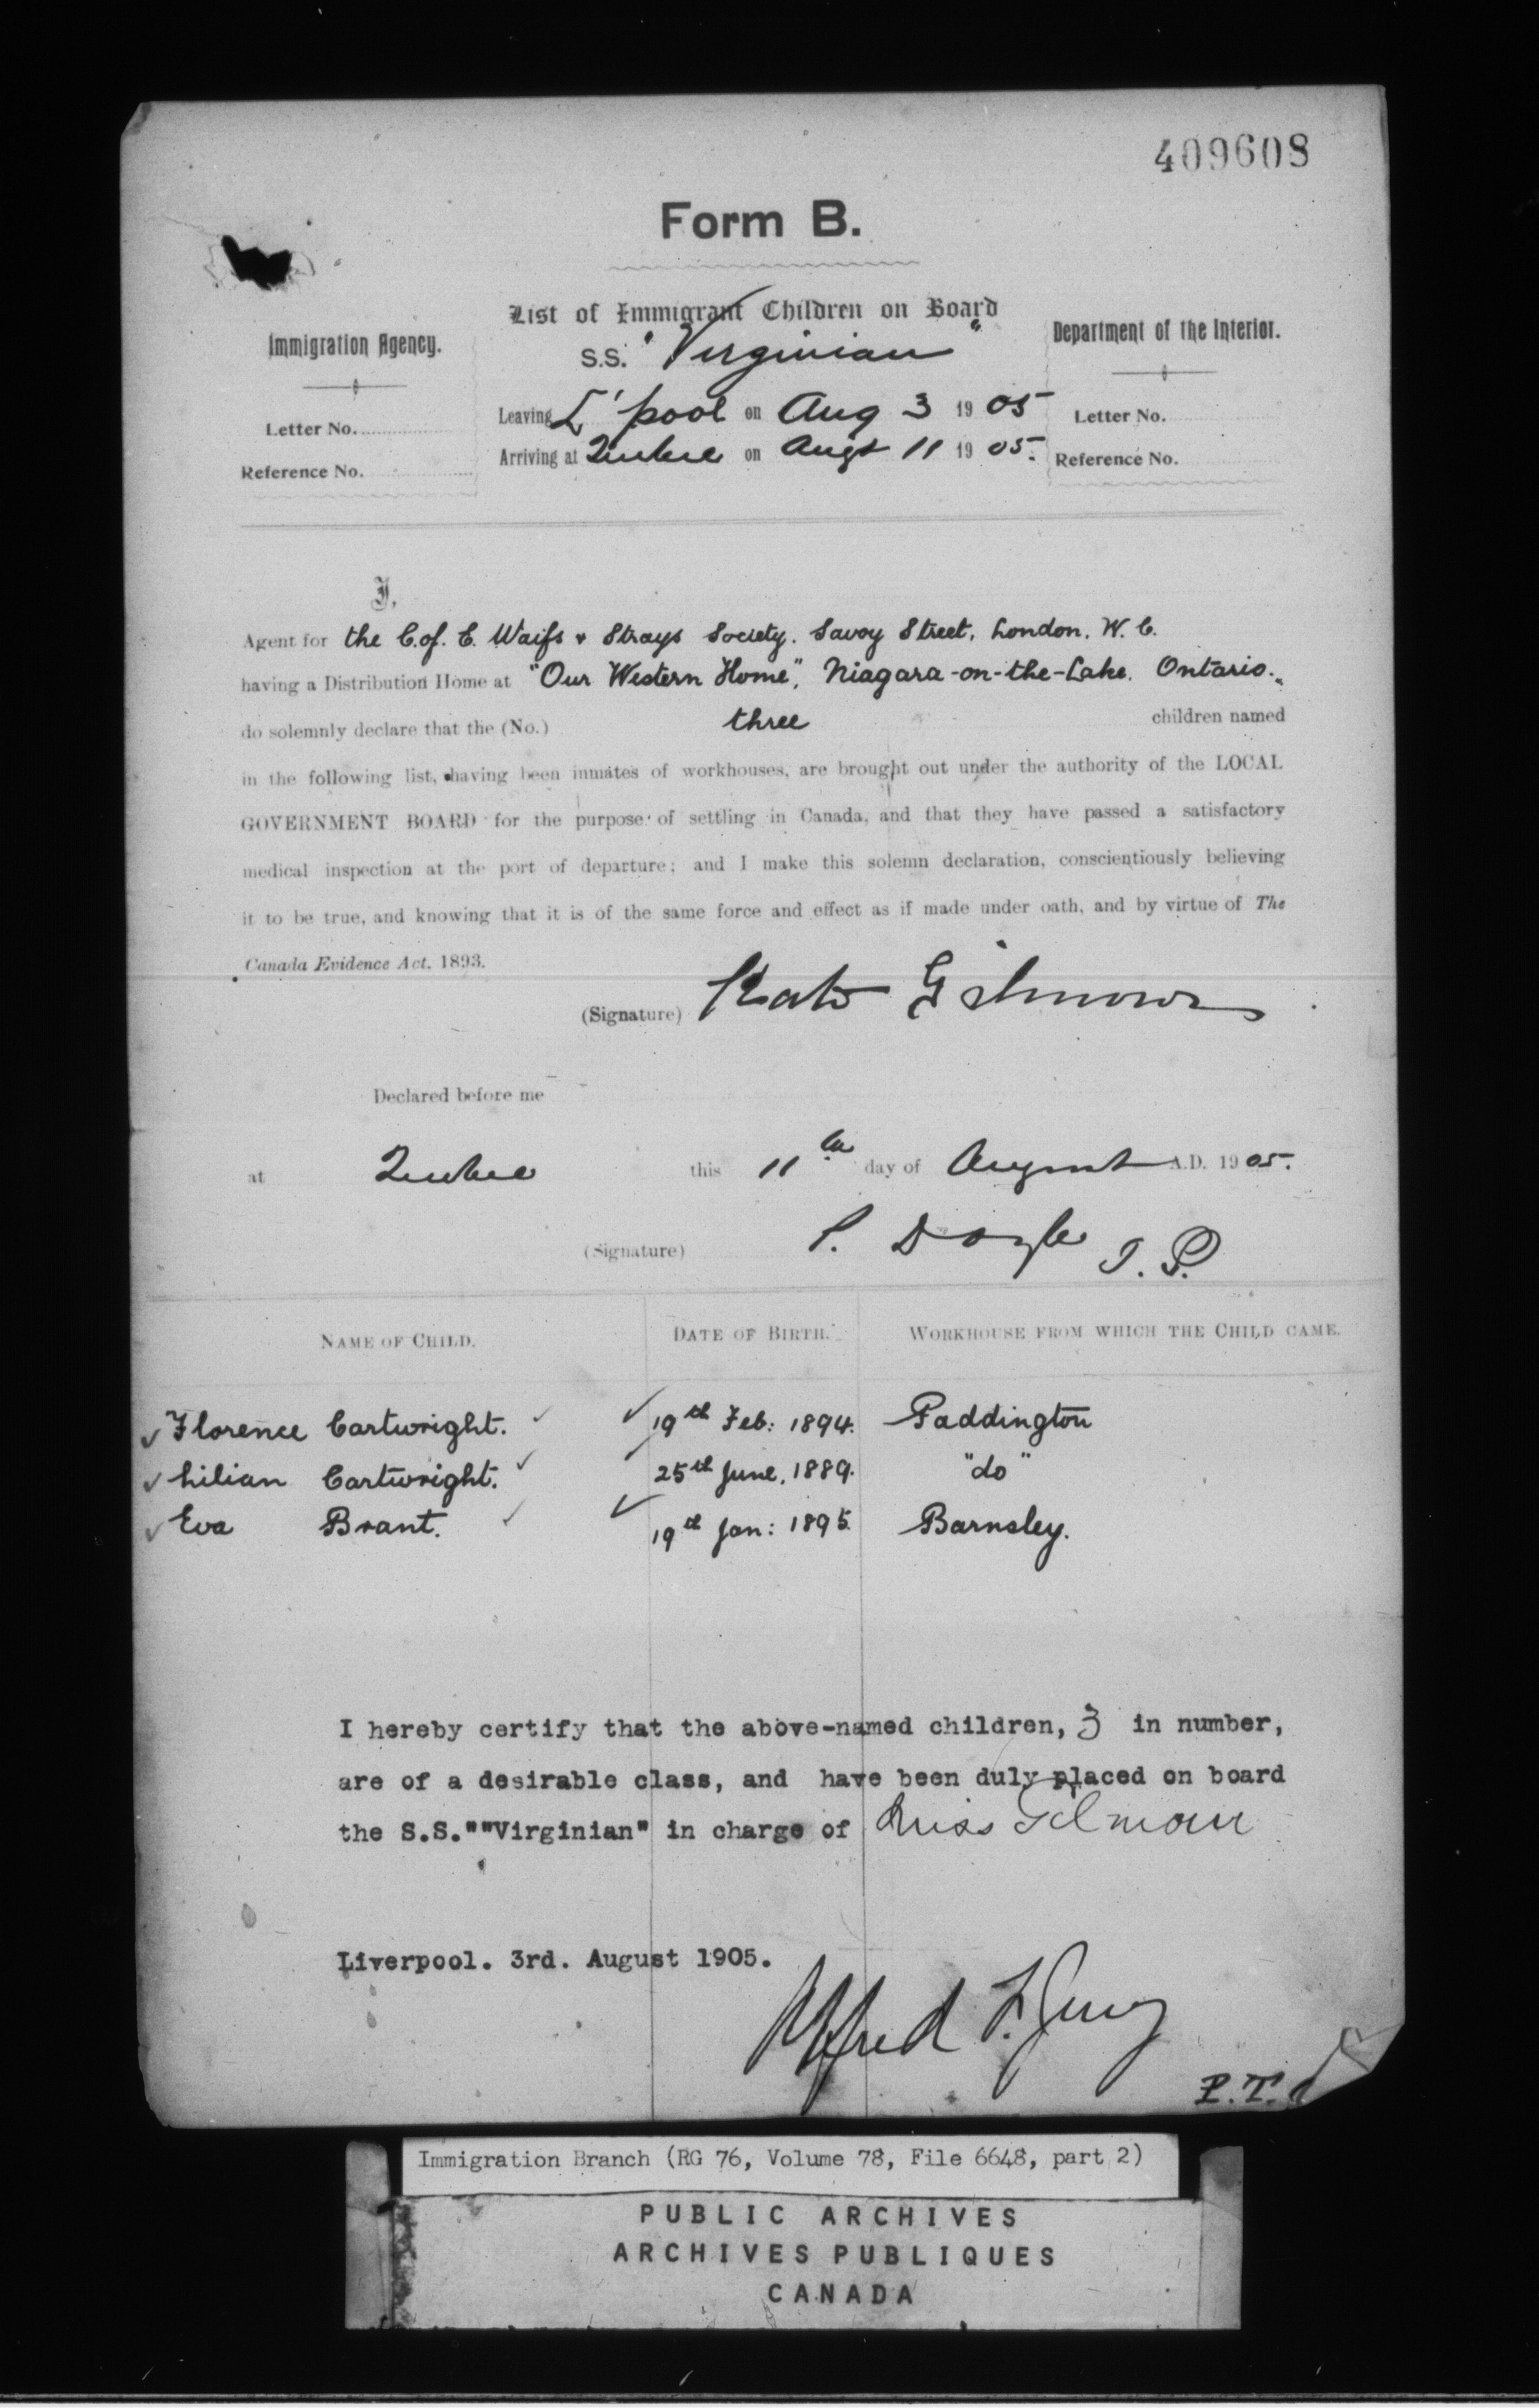 409608
Form B.
List of Immigrant Children on Board
S.S. "Virginian"
Immigration Agency.
Department of the Interior.
Leaving L'pool on Aug 3 1905
Letter No.
Letter No.
Arriving at Quebec on Augt 11 1905.
Reference No.
Reference No.
I,
Agent for the C. of. E. Waifs & Strays Society. Savoy Street, London. W. C.
having a Distribution Home at "Our Western Home", Niagara-on-the-Lake. Ontario.
do solemnly declare that the (No.) three children named
in the following list, having been inmates of workhouses, are brought out under the authority of the LOCAL
GOVERNMENT BOARD for the purpose of settling in Canada, and that they have passed a satisfactory
medical inspection at the port of departure; and I make this solemn declaration, conscientiously believing
it to be true, and knowing that it is of the same force and effect as if made under oath, and by virtue of The
Canada Evidence Act, 1893.
(Signature) Kate Gilmour
Declared before me
at Quebec this 11th day of August A.D. 1905.
(Signature) P. Doyle J. P.
NAME OF CHILD. DATE OF BIRTH. WORKHOUSE FROM WHICH THE CHILD CAME.
Florence Cartwright. 19th Feb: 1894. Paddington
Lilian Cartwright. 25th June, 1889. "do"
Eva Brant. 19th Jan: 1895. Barnsley.
I hereby certify that the above-named children, 3 in number,
are of a desirable class, and have been duly placed on board
the S.S.""Virginian" in charge of Miss Gilmour
Liverpool. 3rd. August 1905.
Alfred F. Jury
P.T.
Immigration Branch (RG 76, Volume 78, File 6648, part 2)
PUBLIC ARCHIVES
ARCHIVES PUBLIQUES
CANADA